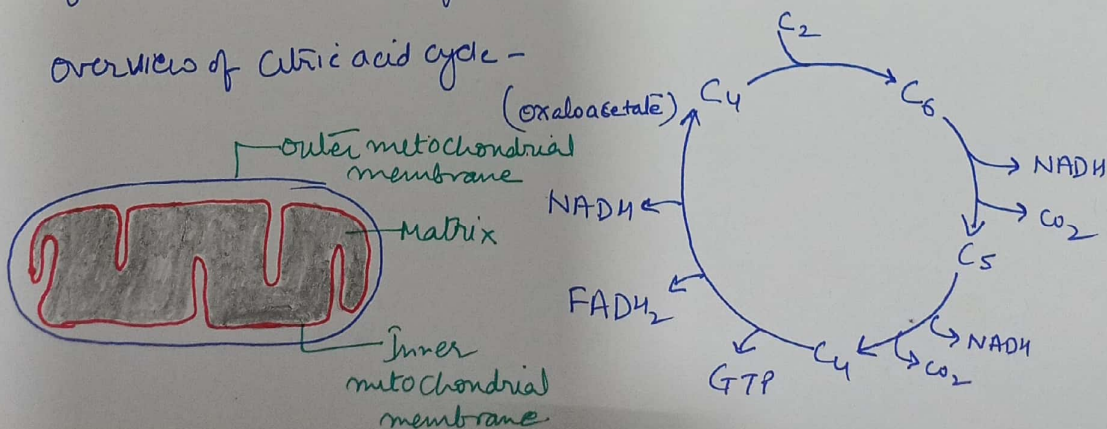 overview of citric acid cycle -
outer mitochondrial
membrane
Matrix
Inner
mitochondrial
membrane
C2
(oxaloacetate) C4
C6
NADH
CO2
C5
NADH
CO2
C4
GTP
FADH2
NADH